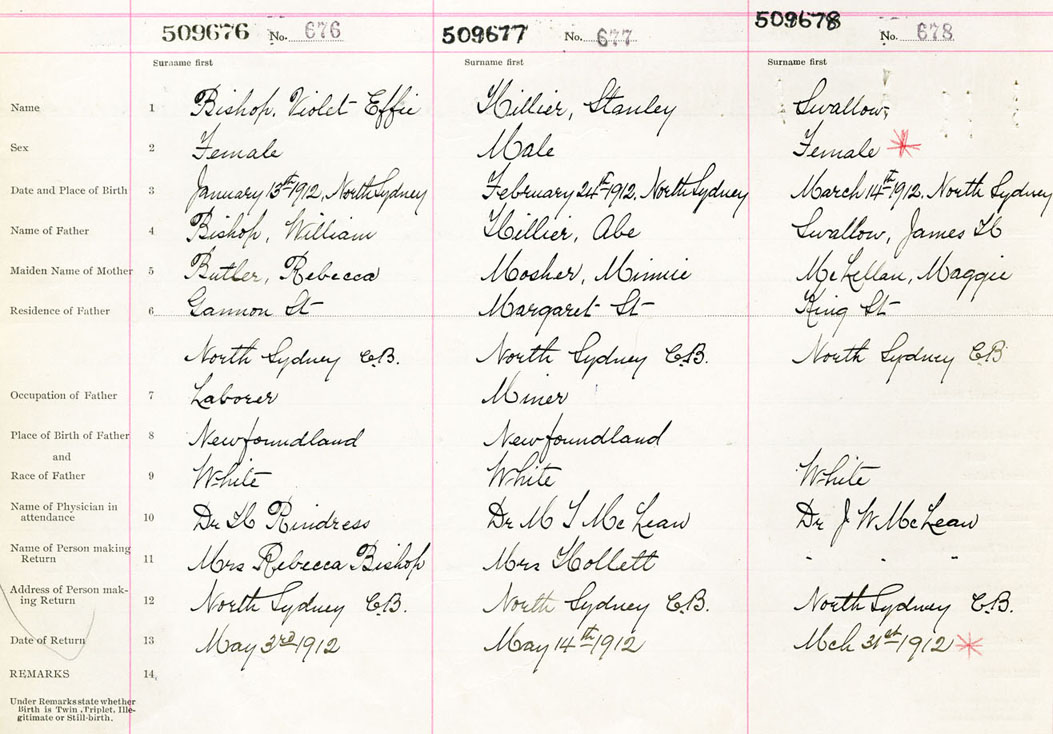 509676 No. 676 509677 No. 677 509678 No. 678
Surname first Surname first Surname first
Name 1 Bishop, Violet Effie Hillier, Stanley Swallow,
Sex 2 Female Male Female *
Date and Place of Birth 3 January 13th 1912, North Sydney February 24th 1912, North Sydney March 14th 1912, North Sydney
Name of Father 4 Bishop, William Hillier, Abe Swallow, James H
Maiden Name of Mother 5 Butler, Rebecca Mosher, Minnie McLellan, Maggie
Residence of Father 6 Gannon St Margaret St King St
North Sydney C.B. North Sydney C.B. North Sydney C.B
Occupation of Father 7 Laborer Miner
Place of Birth of Father 8 Newfoundland Newfoundland
and
Race of Father 9 White White White
Name of Physician in
attendance 10 Dr H Rindress Dr M T McLean Dr J W McLean
Name of Person making
Return 11 Mrs Rebecca Bishop Mrs Hollett " " "
Address of Person mak-
ing Return 12 North Sydney C.B. North Sydney C.B. North Sydney C.B.
Date of Return 13 May 3rd 1912 May 14th 1912 Mch 31st 1912 *
REMARKS 14
Under Remarks state whether
Birth is Twin, Triplet, Ille-
gitimate or Still-birth.